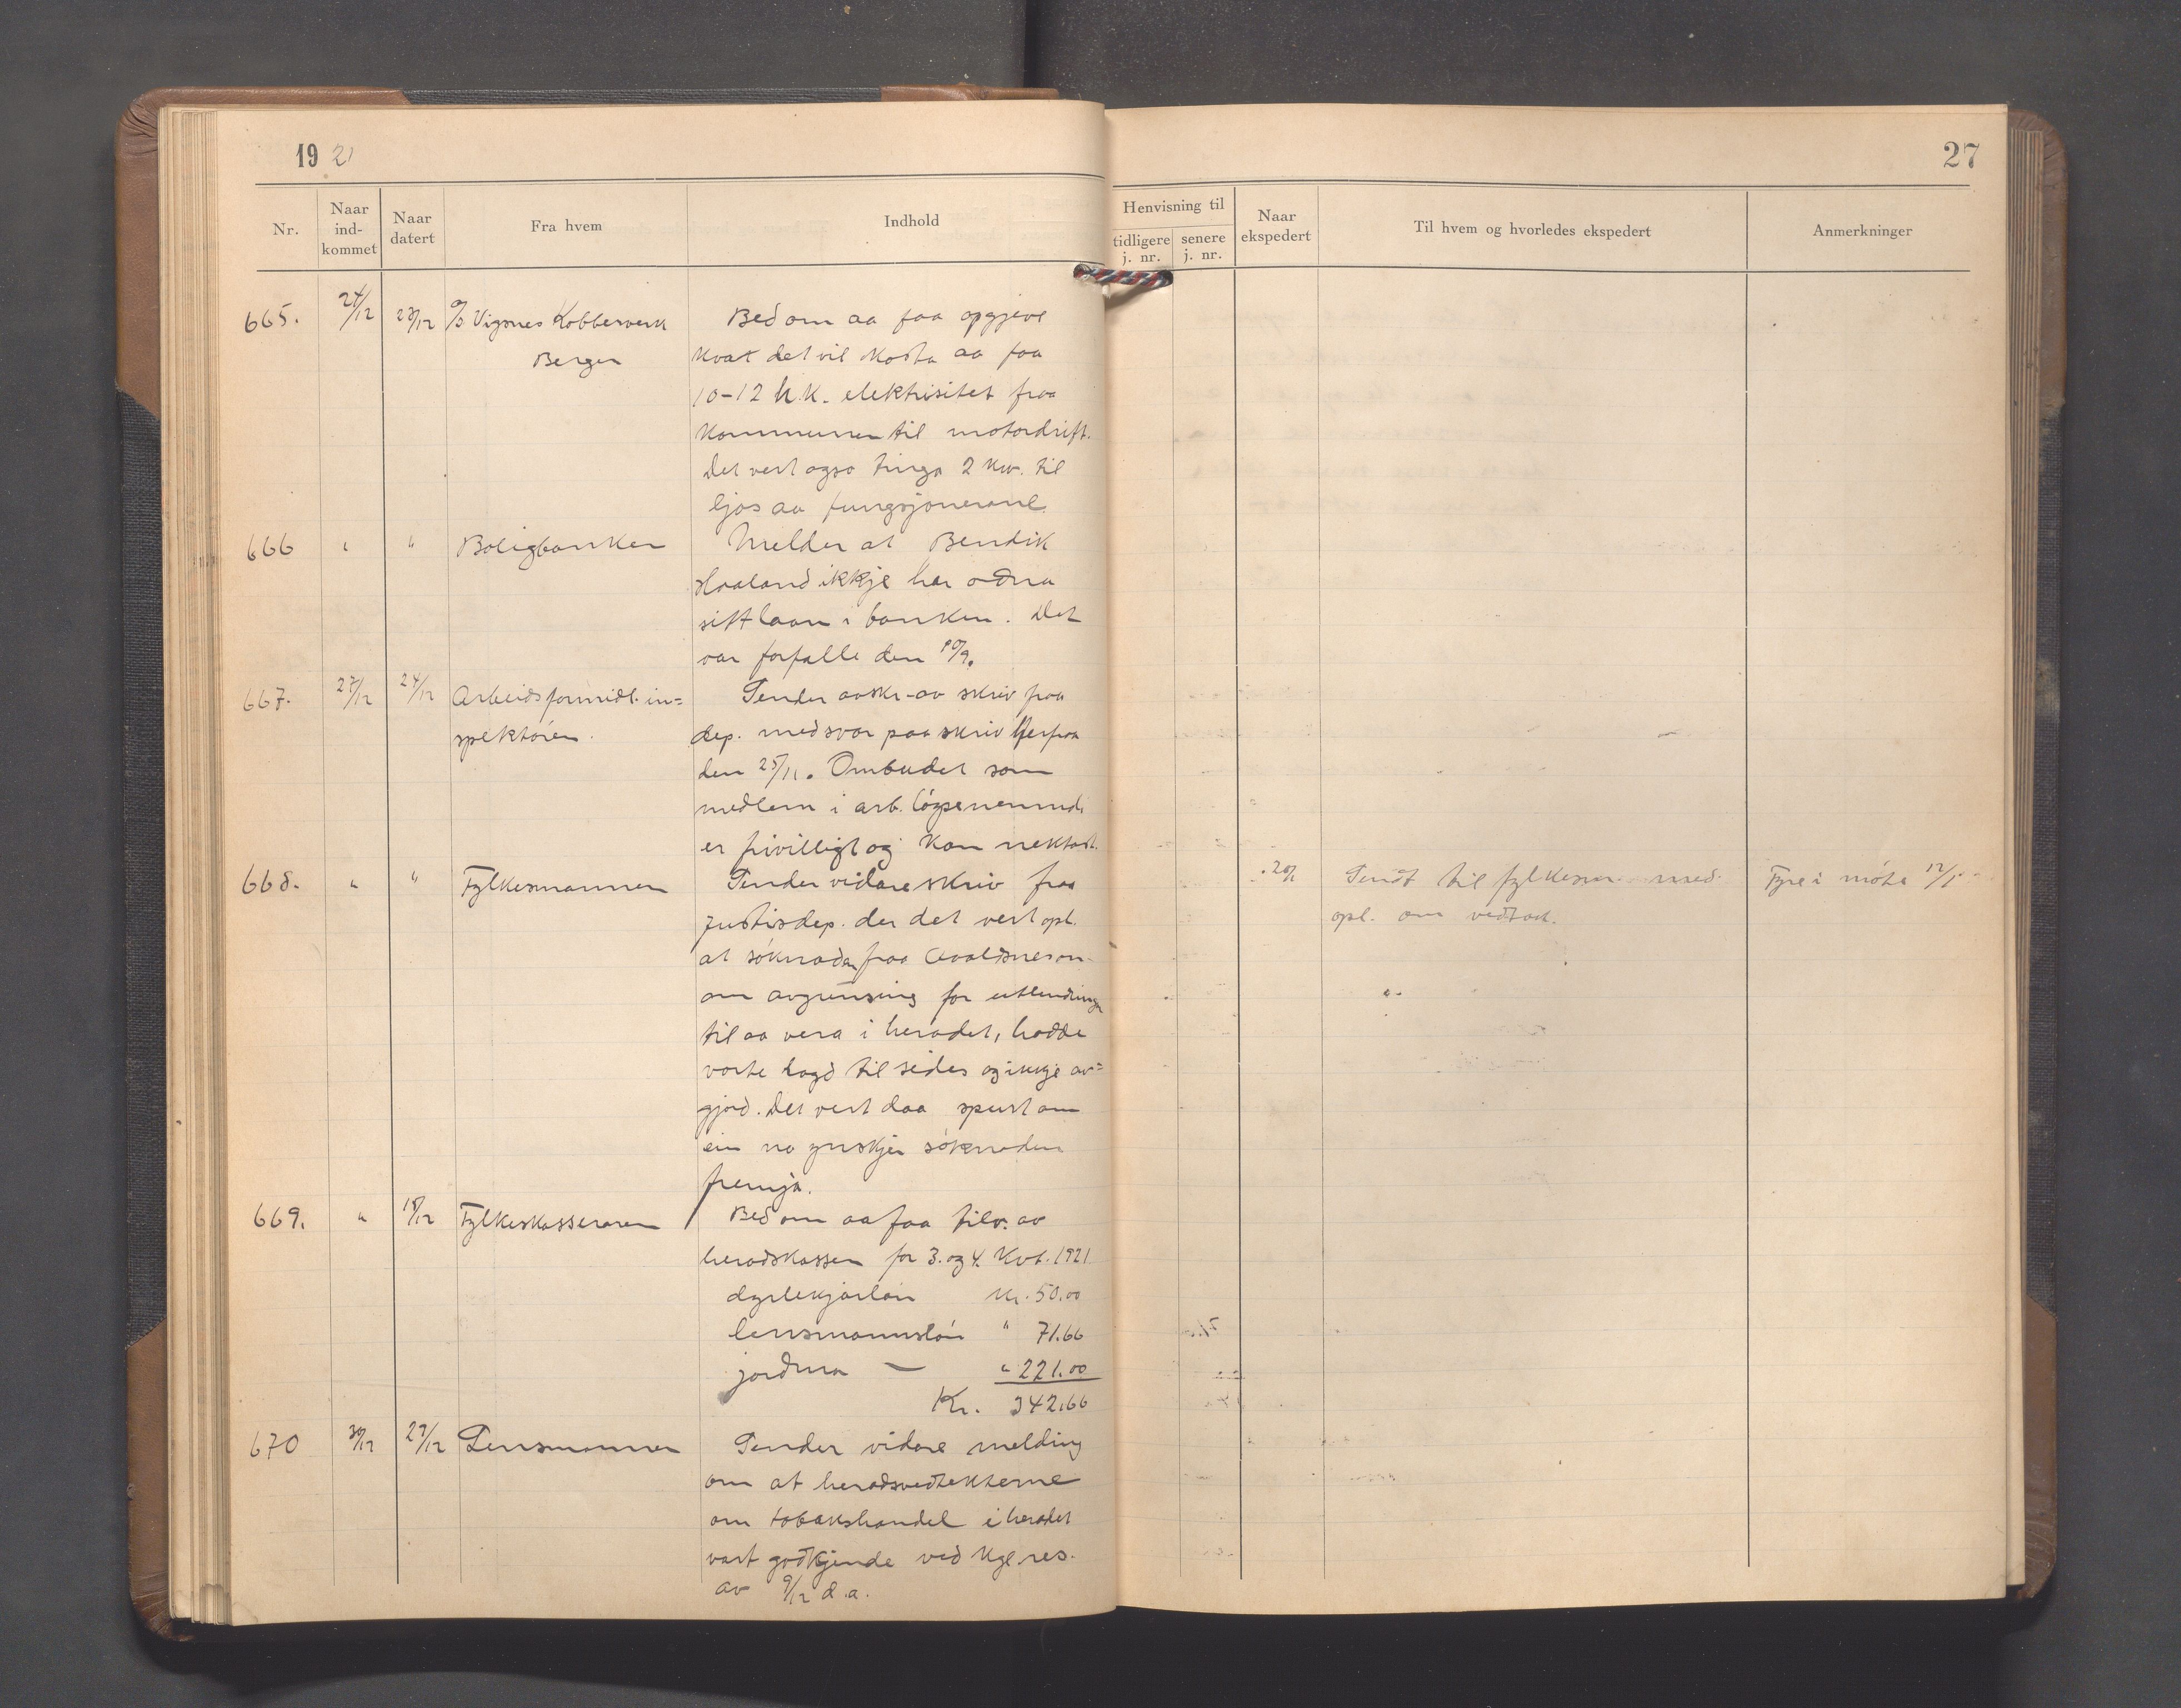 1921
27
Nr.
Naar ind-kommet
Naar datert
Fra hvem
Indhold
Henvisning til
tidligere j. nr.
senere j. nr.
Naar ekspedert
Til hvem og hvorledes ekspedert
Anmerkninger
665. 24/12 23/12 A/S Vigsnes Kobberverk
Bergen
Bed om aa faa opgjeve
kvat det vil kosta aa faa
10-12 h.k. elektrisitet fraa
kommunen til motordrift.
Det vert ogso tinga 2 kw. til
ljos aa fungsjonerane.
666 " " Boligbanken
Melder at Bendik
Haaland ikkje har odna
sitt laan i banken. Det
var forfalle den 10/9.
667. 27/12 24/12 Arbeidsformidl. in=
spektóren.
Sender avskr. av skriv fraa
dep. med svar paa skriv herfraa
den 25/11. Ombudet som
medlem i arb. lóysenemnd
er frivilligt og kan nektast.
668. " " Fylkesmannen
Sender vidare skriv fraa
Justisdep. der det vert opl.
at sóknaden fraa Avaldsnes
om avgrensing for utlendingar
til aa vera i heradet, hadde
vorte lagd til sides og ikkje av=
gjord. Det vert daa spurt om
ein no ynskjer sóknaden
fremja.
20/1 Sendt til fylkesm. med
opl. om vedtak.
Fyre i móte 12/1
669. " 15/12 Fylkeskasseraren
Bed om aa faa tilv. av
heradskassen for 3. og 4. Kvt. 1921
dyrlækjarlón Kr. 50.00
lensmannslón " 71.66
jordmo — " 221.00
Kr. 342.66
670 30/12 27/12 Lensmannen
Sender vidare melding
om at heradsvedtekterne
om tobakshandel i heradet
vart godkjende ved kgl. res.
av 9/12 d.a.